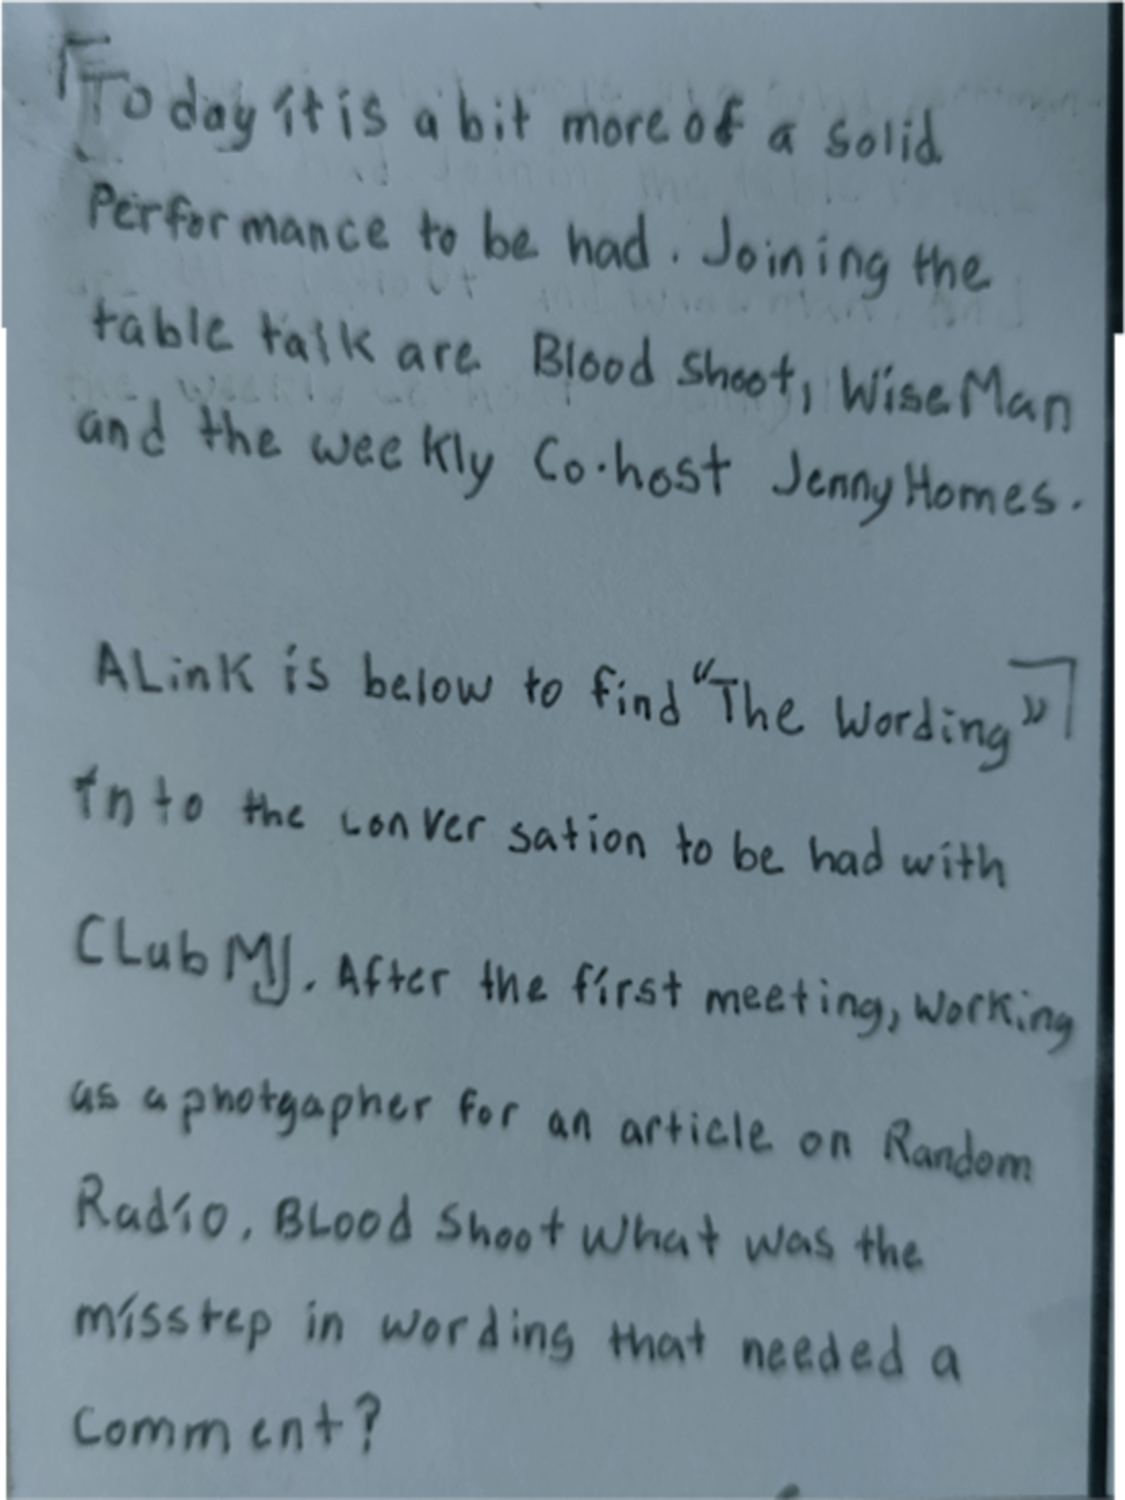 「Today it is a bit more of a solid
Performance to be had. Joining the
table talk are Blood Shoot, Wise Man
and the weekly Co-host Jenny Homes.
A Link is below to find "The Wording"」
into the conversation to be had with
CLub MJ. After the first meeting, working
as a photgapher for an article on Random
Radio, BLood Shoot What was the
misstep in wording that needed a
Comment?